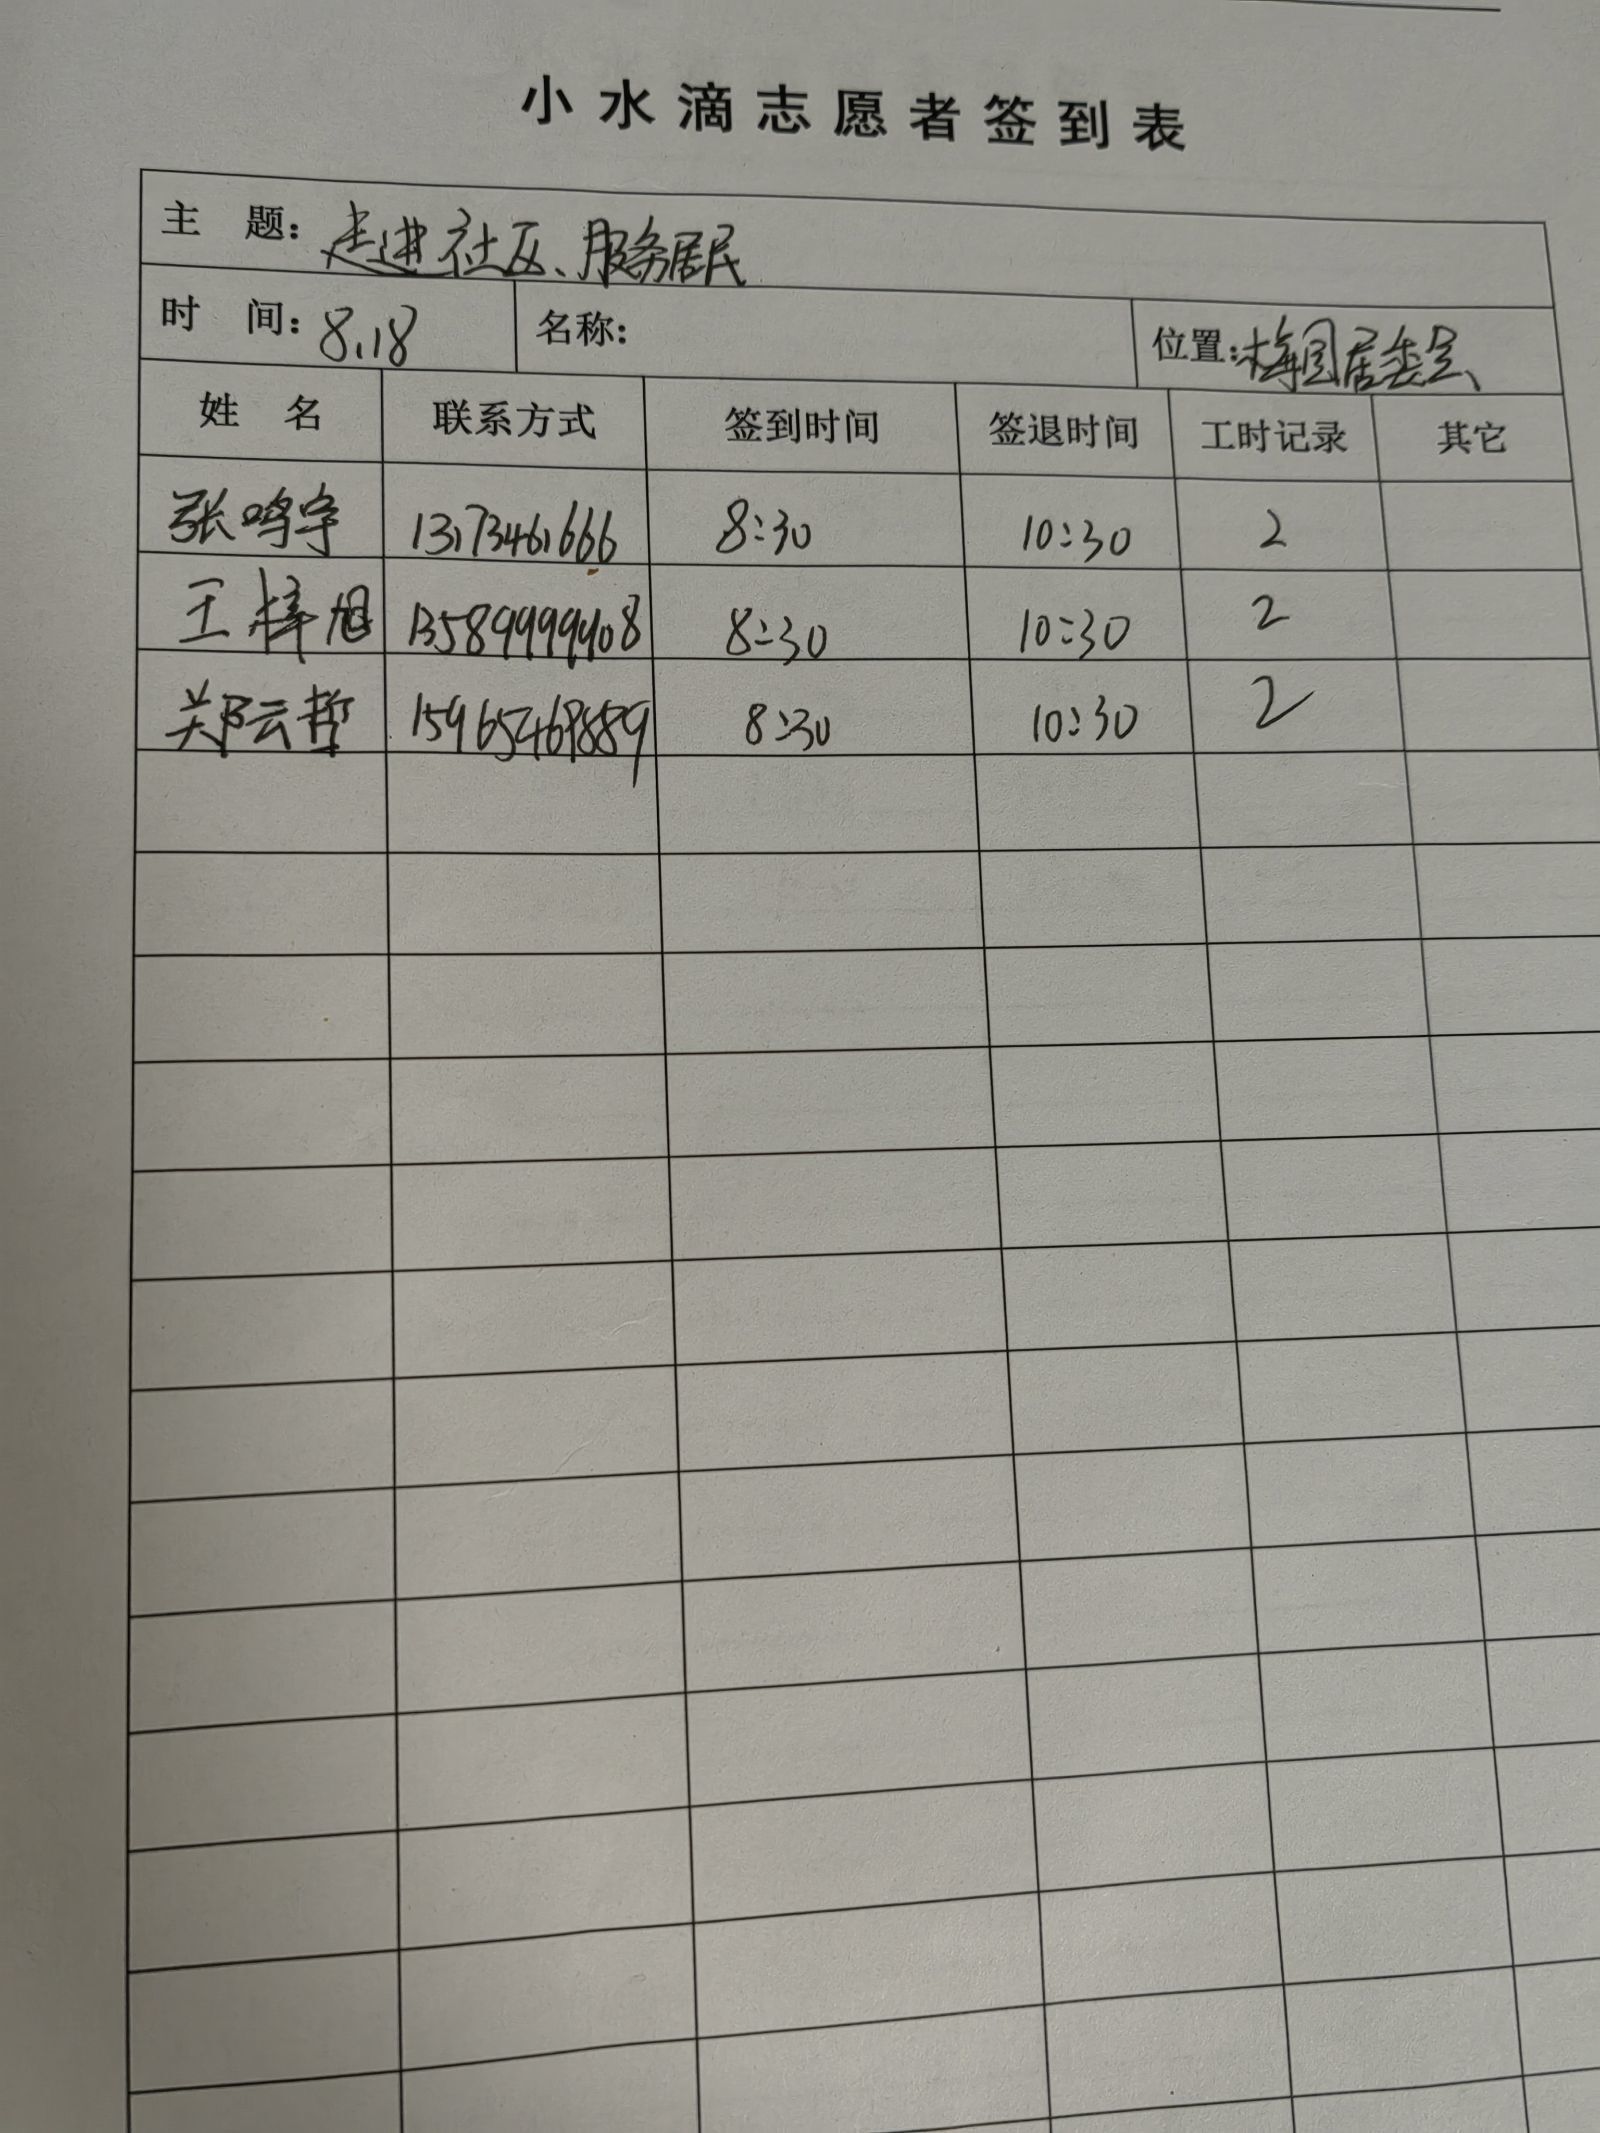 小水滴志愿者签到表
主 题：走进社区、服务居民
时 间：8.18 名称： 位置：梅园居委会
姓 名 联系方式 签到时间 签退时间 工时记录 其它
张鸣宇 13173461666 8:30 10:30 2
王梓旭 13589999908 8:30 10:30 2
郑云哲 15965469889 8:30 10:30 2